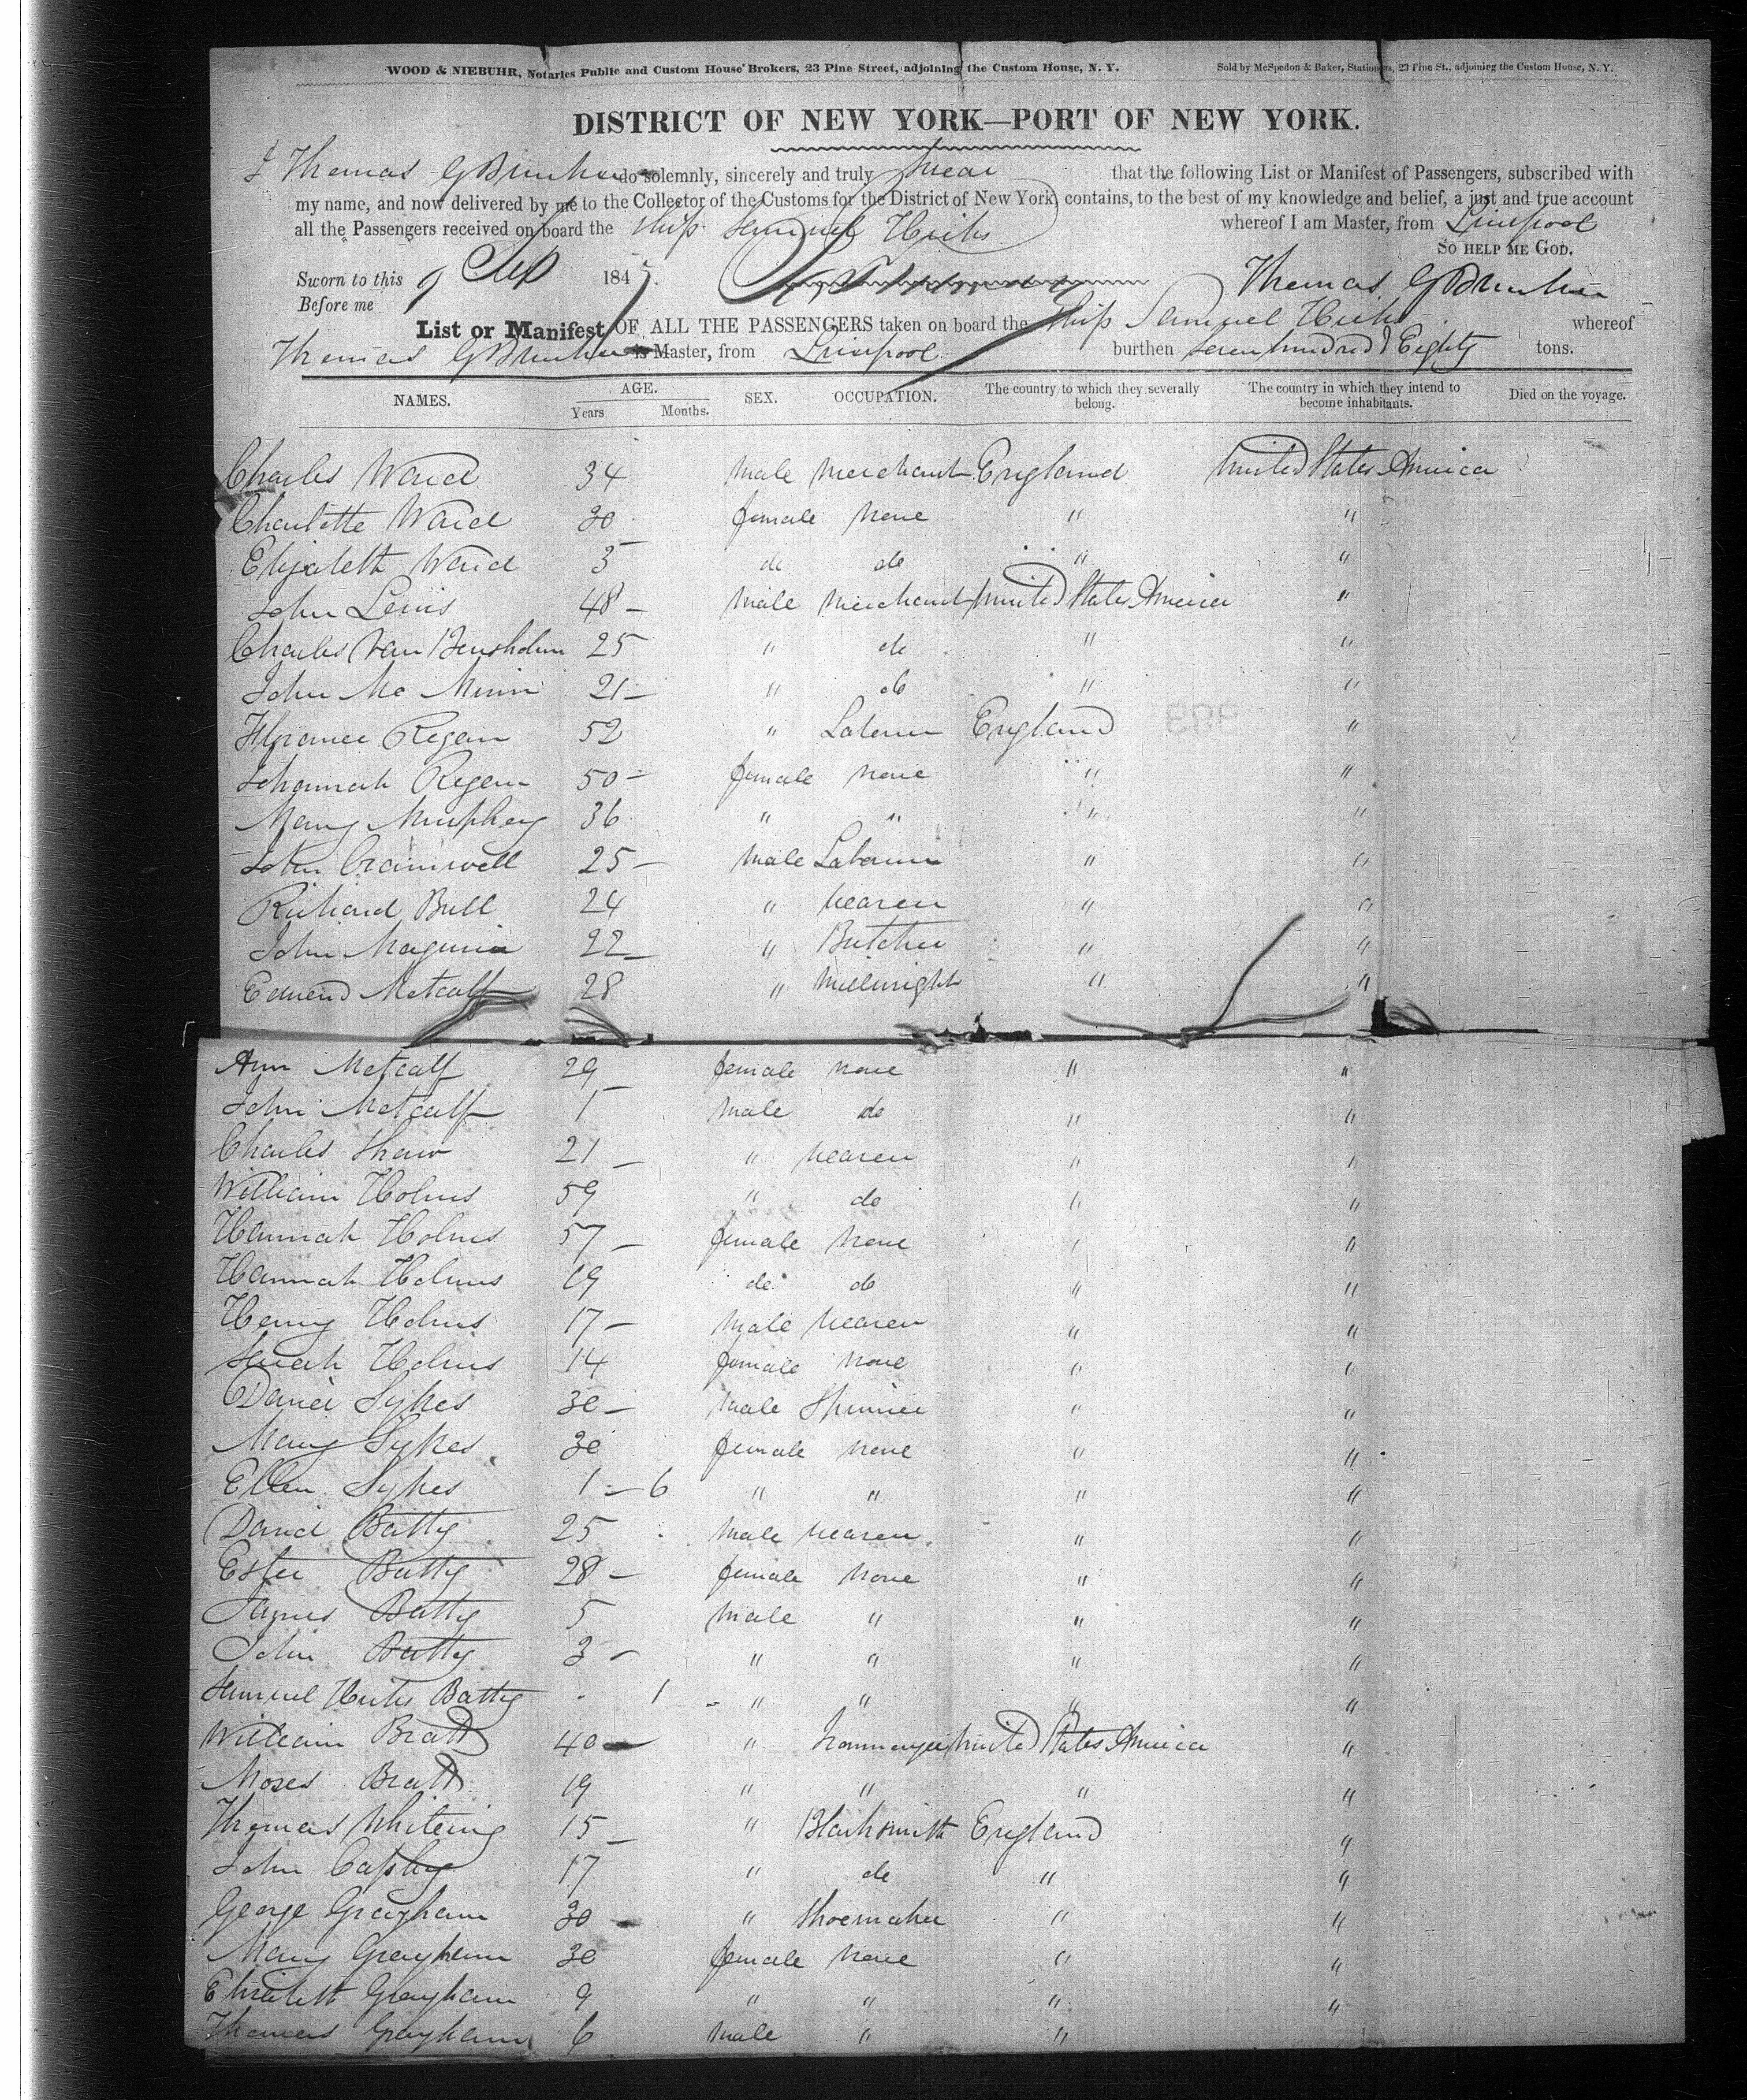 WOOD & NIEBUHR, Notaries Public and Custom House Brokers, 23 Pine Street, adjoining the Custom House, N. Y. Sold by McSpedon & Baker, Stationers, 23 Pine St., adjoining the Custom House, N. Y.
DISTRICT OF NEW YORK—PORT OF NEW YORK.
I Thomas G do solemnly, sincerely and truly Swear that the following List or Manifest of Passengers, subscribed with
my name, and now delivered by me to the Collector of the Customs for the District of New York, contains, to the best of my knowledge and belief, a just and true account
all the Passengers received on board the Ship Samuel Hicks whereof I am Master, from Liverpool
SO HELP ME GOD.
Sworn to this 9 Sep 184 Thomas G
Before me
List or Manifest OF ALL THE PASSENGERS taken on board the Ship Samuel Hicks whereof
Thomas G is Master, from Liverpool burthen seven hundred & Eighty tons.
NAMES. AGE. Years Months. SEX. OCCUPATION. The country to which they severally belong. The country in which they intend to become inhabitants. Died on the voyage.
Charles Ward 34 Male Merchant England United States America
Charlotte Ward 30 female None " "
Elizabeth Ward 3 do do " "
John Lewis 48 Male Merchant United States America "
Charles Van 25 " do " "
John Mc Minn 21 " do " "
Florance Regan 52 " Laborer England "
Johannah Regan 50 female None " "
Mary Murphey 36 " " " "
John Cramwell 25 Male Laborer " "
Richard Bull 24 " Weaver " "
John Maguire 22 " Butcher " "
Edmend Metcalf 28 " Millwright " "
Ann Metcalf 29 female None " "
John Metcalf 1 Male do " "
Charles Shaw 21 " Weaver " "
William Holms 59 " do " "
Hannah Holms 57 female None " "
Hannah Holms 19 do do " "
Henry Holms 17 Male Weaver " "
Sarah Holms 14 female None " "
Daniel Sykes 30 Male Spinner " "
Mary Sykes 30 female None " "
Ellen Sykes 1 6 " " " "
David Batty 25 Male Weaver " "
Ester Batty 28 female None " "
James Batty 5 Male " " "
John Batty 3 " " " "
Samuel Hicks Batty 1 " " " "
William Bratt 40 " Ironmonger United States America "
Moses Bratt 19 " " " "
Thomas Whiteing 15 " Blacksmith England "
John 17 " do " "
George Grayham 30 " Shoemaker " "
Mary Grayham 30 female None " "
Elizabeth Grayham 9 " " " "
Thomas Grayham 6 Male " "